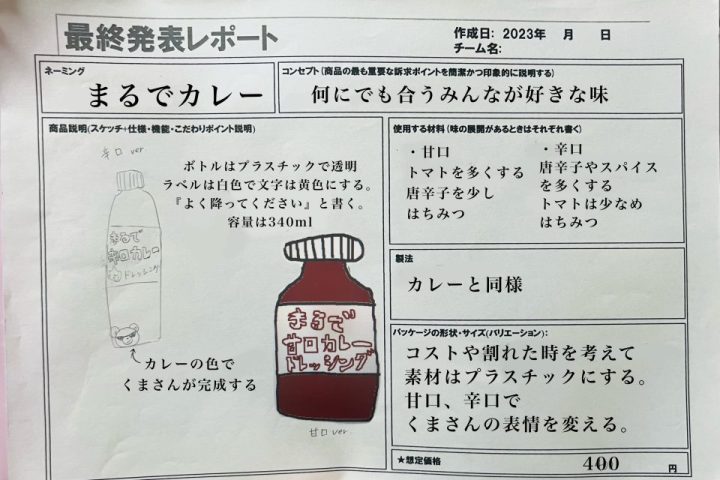 最終発表レポート
作成日: 2023年　月　日
チーム名:
ネーミング
まるでカレー
コンセプト(商品の最も重要な訴求ポイントを簡潔かつ印象的に説明する)
何にでも合うみんなが好きな味
商品説明(スケッチ+仕様・機能・こだわりポイント説明)
辛口 ver.
ボトルはプラスチックで透明
ラベルは白色で文字は黄色にする。
『よく降ってください』と書く。
容量は340ml
まるで
甘口カレー
ドレッシング
カレーの色で
くまさんが完成する
まるで
甘口カレー
ドレッシング
甘口 ver.
使用する材料(味の展開があるときはそれぞれ書く)
・甘口
トマトを多くする
唐辛子を少し
はちみつ
・辛口
唐辛子やスパイス
を多くする
トマトは少なめ
はちみつ
製法
カレーと同様
パッケージの形状・サイズ(バリエーション):
コストや割れた時を考えて
素材はプラスチックにする。
甘口、辛口で
くまさんの表情を変える。
★想定価格
400 円